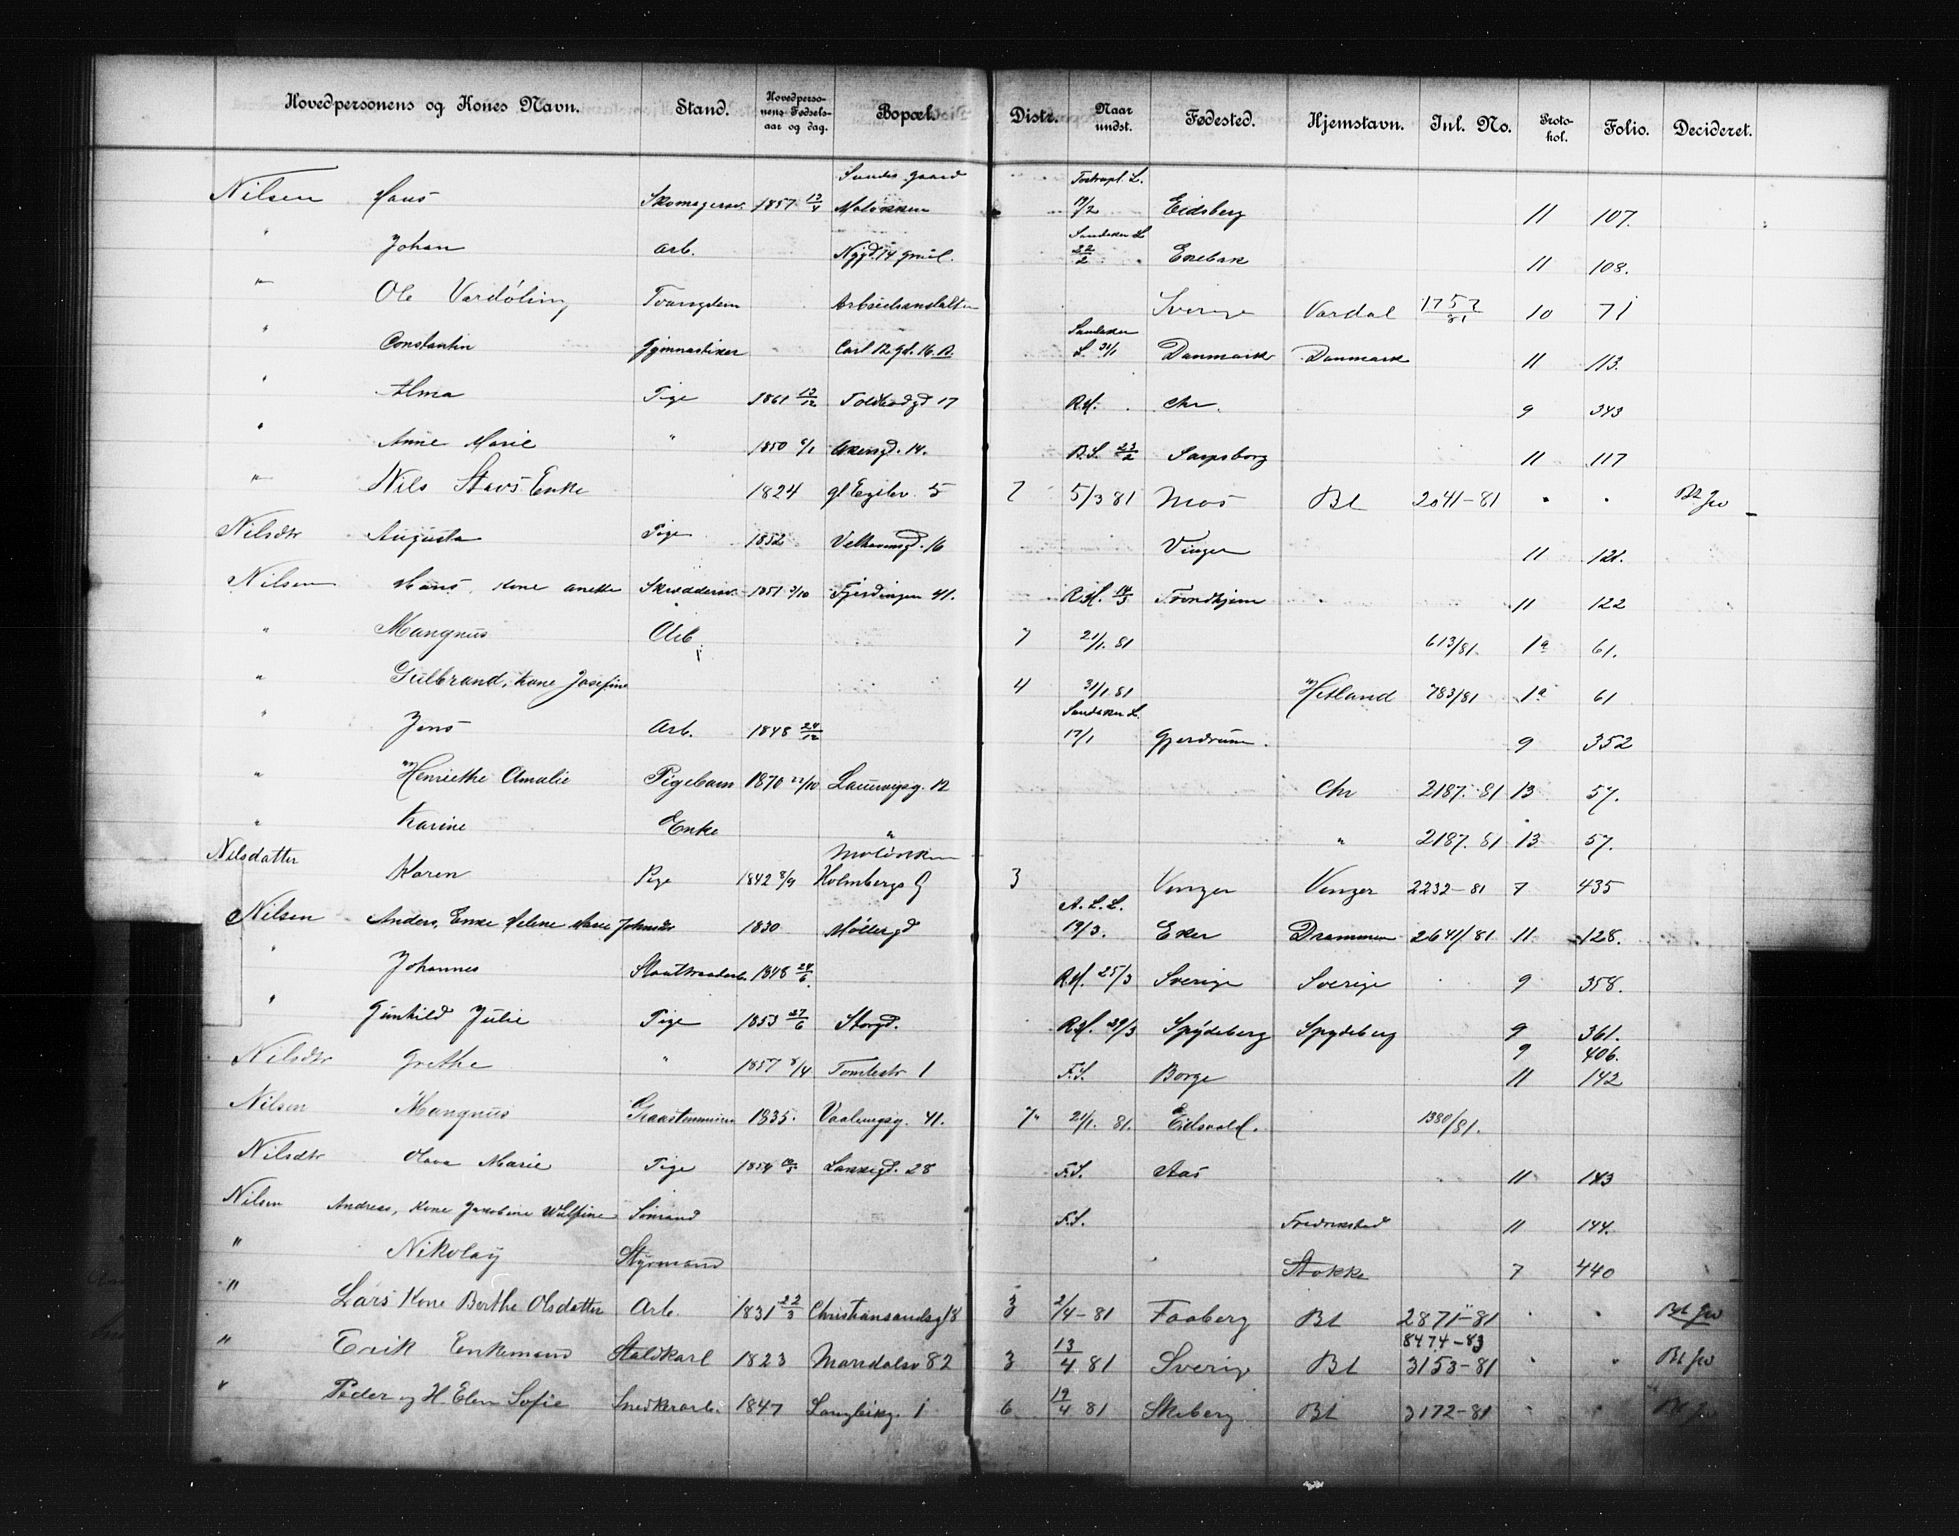 Hovedpersonens og Kones Navn. Stand. Hovedpersonens Fødselsaar og dag. Bopæl. Distr. Naar undst. Fødested. Hjemstavn. Inl. No. Protokol. Folio. Decideret.
Nilsen Hans Skomagersv. 1857 Molökken 19/2 Eidsberg 11 107.
" Johan Arb. 22/2 Enebak 11 108.
" Ole Vardöling Arbeidsanstalten Sverige Vardal 1757/81 10 71
" Constantin Gymnastiker Carl 12 Gd. 16 B. Sandaker L. 31/1 Danmark Danmark 11 113.
" Alma Pige 1861 13/12 Toldbodgd 17 R.H. Chr. 9 343
" Anne Marie " 1850 6/1 Akersgd. 14. R.S. 23/2 Sarpsborg 11 117
" Nils Stavs Enke 1824 gl Egebv. 5 2 5/3 81 Mos Bl 2041-81 " "
Nilsdtr Augusta Pige 1852 Velhavensgd. 16 Vinger 11 121.
Nilsen Hans, Kone Anette Skræddersv. 1851 3/10 Fjerdingen 41. R.H. 14/3 Trondhjem 11 122
" Mangnus Arb. 7 21/1. 81 613/81. 1a 61.
" Gulbrand, Kone Josefine 4 31/1 81 Hetland 783/81 1a 61
" Jens Arb. 1848 24/12 Sandaker L. 17/1 Gjerdrum. 9 352
" Henriette Amalie Pigebarn 1870 22/10 Laurvigsg. 12 Chr 2187. 81 13 57.
" Karine Enke " " 2187. 81 13 57.
Nilsdatter Karen Pige 1842 8/9 Molökken Holmbergs G 3 Vinger Vinger 2232-81 7 435
Nilsen Anders, Enke Helene Marie Johnsdtr 1830 Möllergd A.L.L. 19/3. Eker Drammen 2641/81 11 128.
" Johannes 1848 24/6. R.H. 25/3 Sverige Sverige 9 358.
" Gunhild Julie Pige 1853 27/6 Storgd. R.H. 29/3 Spydeberg Spydeberg 9 361.
Nilsdtr Grethe " 1857 8/4 Tomtestr 1 F.S. Borge 9 406. 11 142
Nilsen Mangnus Graastensminer 1835. Vaalerngsg. 41. "7" 21/1. 81. Eidsvold. 1380/81.
Nilsdtr Olava Marie Pige 1854 Lakkegd. 28 F.S. Aas 11 143
Nilsen Andreas, Kone Jakobine Wulfine Sömand F.S. Fredrikstad 11 144.
" Nikolay Styrmand Stokke 7 440
" Lars Kone Berthe Olsdatter Arb. 1831 22/3 Christiansandsg 18 3 2/4-81 Faaberg Bl 2871-81 " "
" Erik Enkemand Staldkarl 1823 Maridalsv 82 3 13/4 81 Sverig Bl 8474-83 3153-81 " "
" Peder og H. Elen Sofie Snedkerarb. 1847 Langleikg. 1 6 19/4 81 Skiberg Bl 3172-81 " "